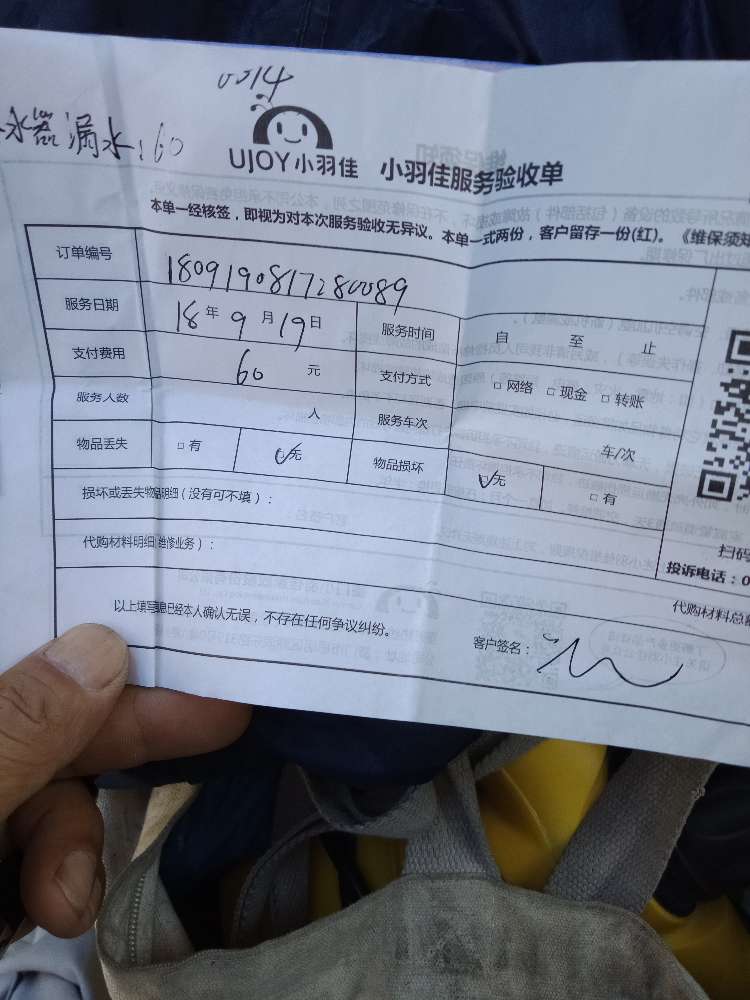 0014
水器漏水:60
UJOY小羽佳 小羽佳服务验收单
本单一经核签，即视为对本次服务验收无异议。本单一式两份，客户留存一份(红)。《维保须知
订单编号 1809190817280089
服务日期 18年9月19日 服务时间 自 至 止
支付费用 60 元 支付方式 □网络 □现金 □转账
服务人数 人 服务车次 车/次
物品丢失 □有 ☑无 物品损坏 ☑无 □有
损坏或丢失物品明细（没有可不填）：
扫码
代购材料明细(维修业务)：
投诉电话：0
代购材料总额
以上填写信息已经本人确认无误，不存在任何争议纠纷。 客户签名：